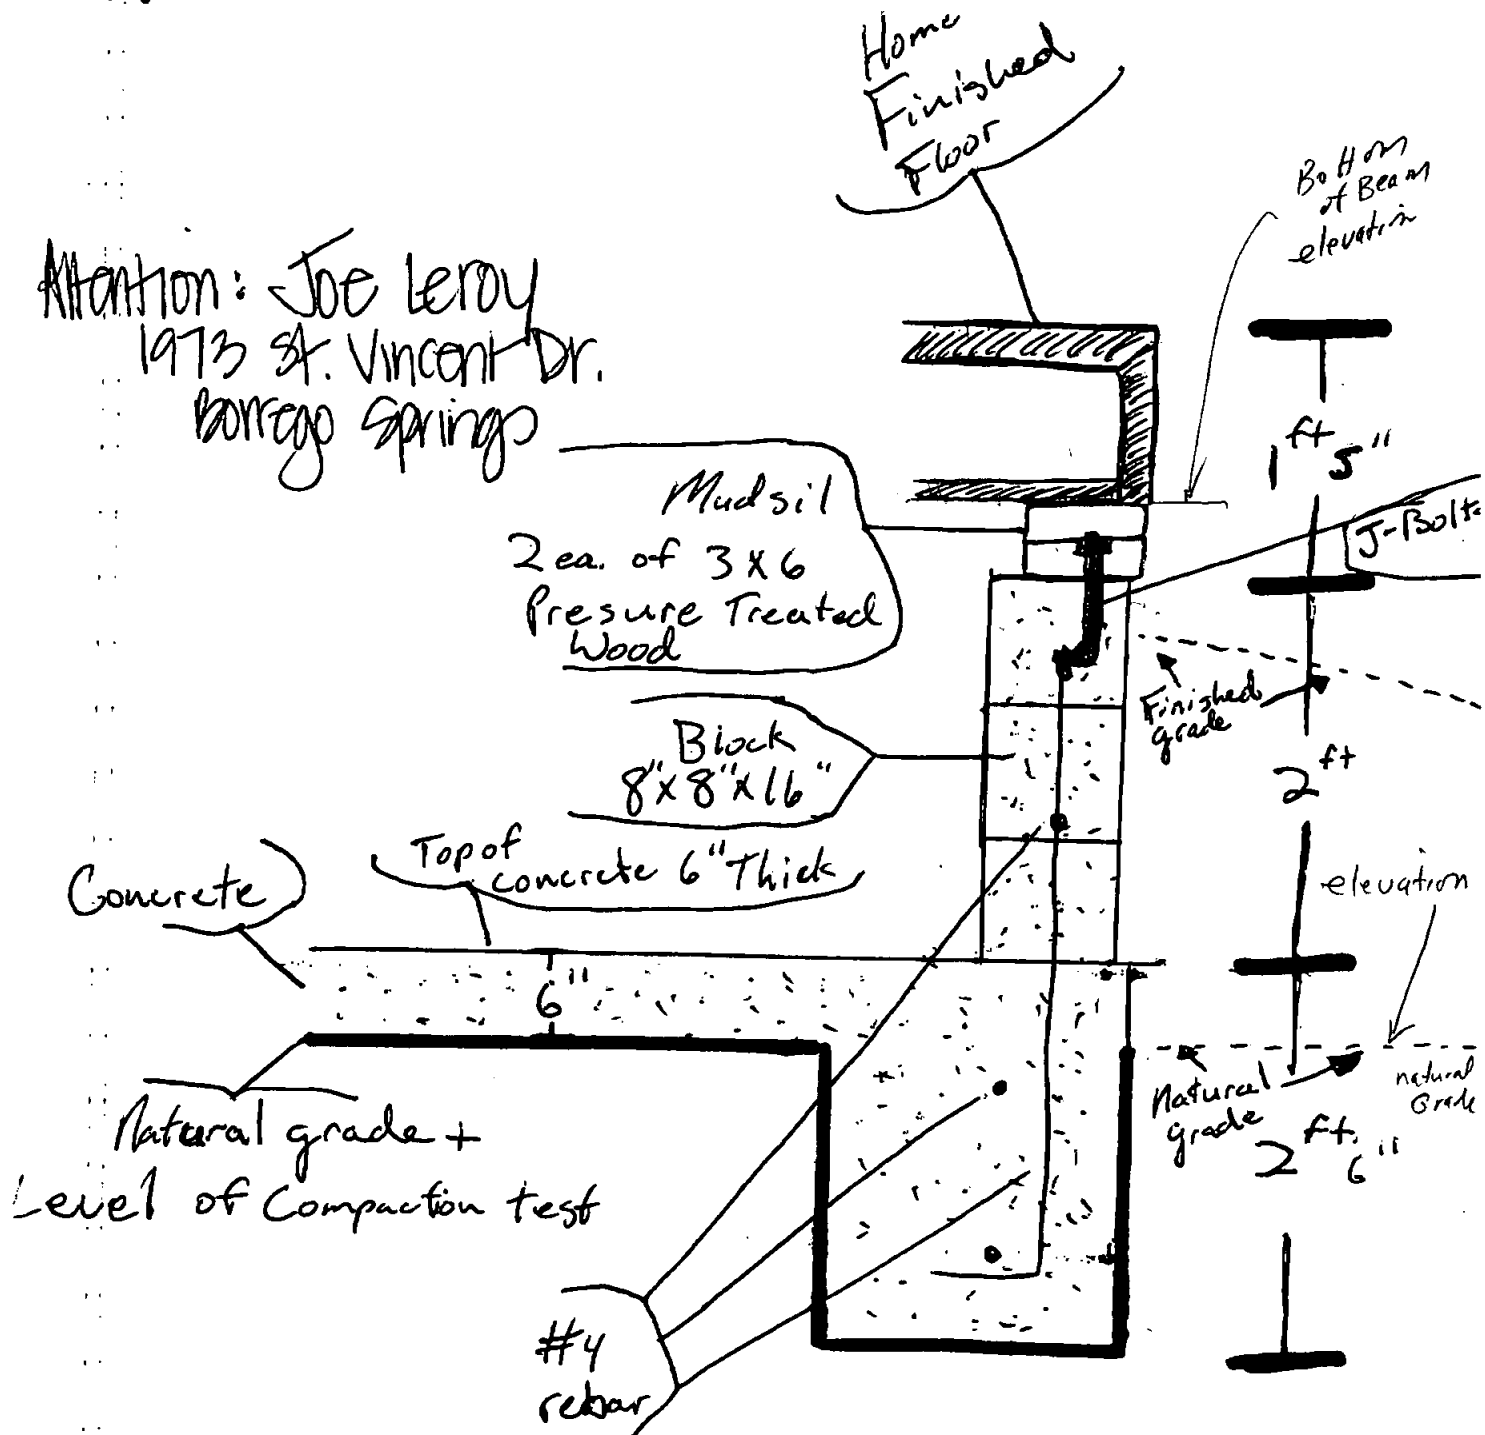 Home
Finished
Floor
Bottom
of Beam
elevation
Attention: Joe Leroy
1973 St. Vincent Dr.
Borrego Springs
1 ft 5"
Mudsil
2 ea. of 3 x 6
Presure Treated
Wood
J-Bolts
Finished
grade
Block
8" x 8" x 16"
2 ft
Top of
concrete 6" Thick
Concrete
elevation
6"
Natural
grade
natural
Grade
2 ft. 6"
Natural grade +
Level of Compaction test
#4
rebar